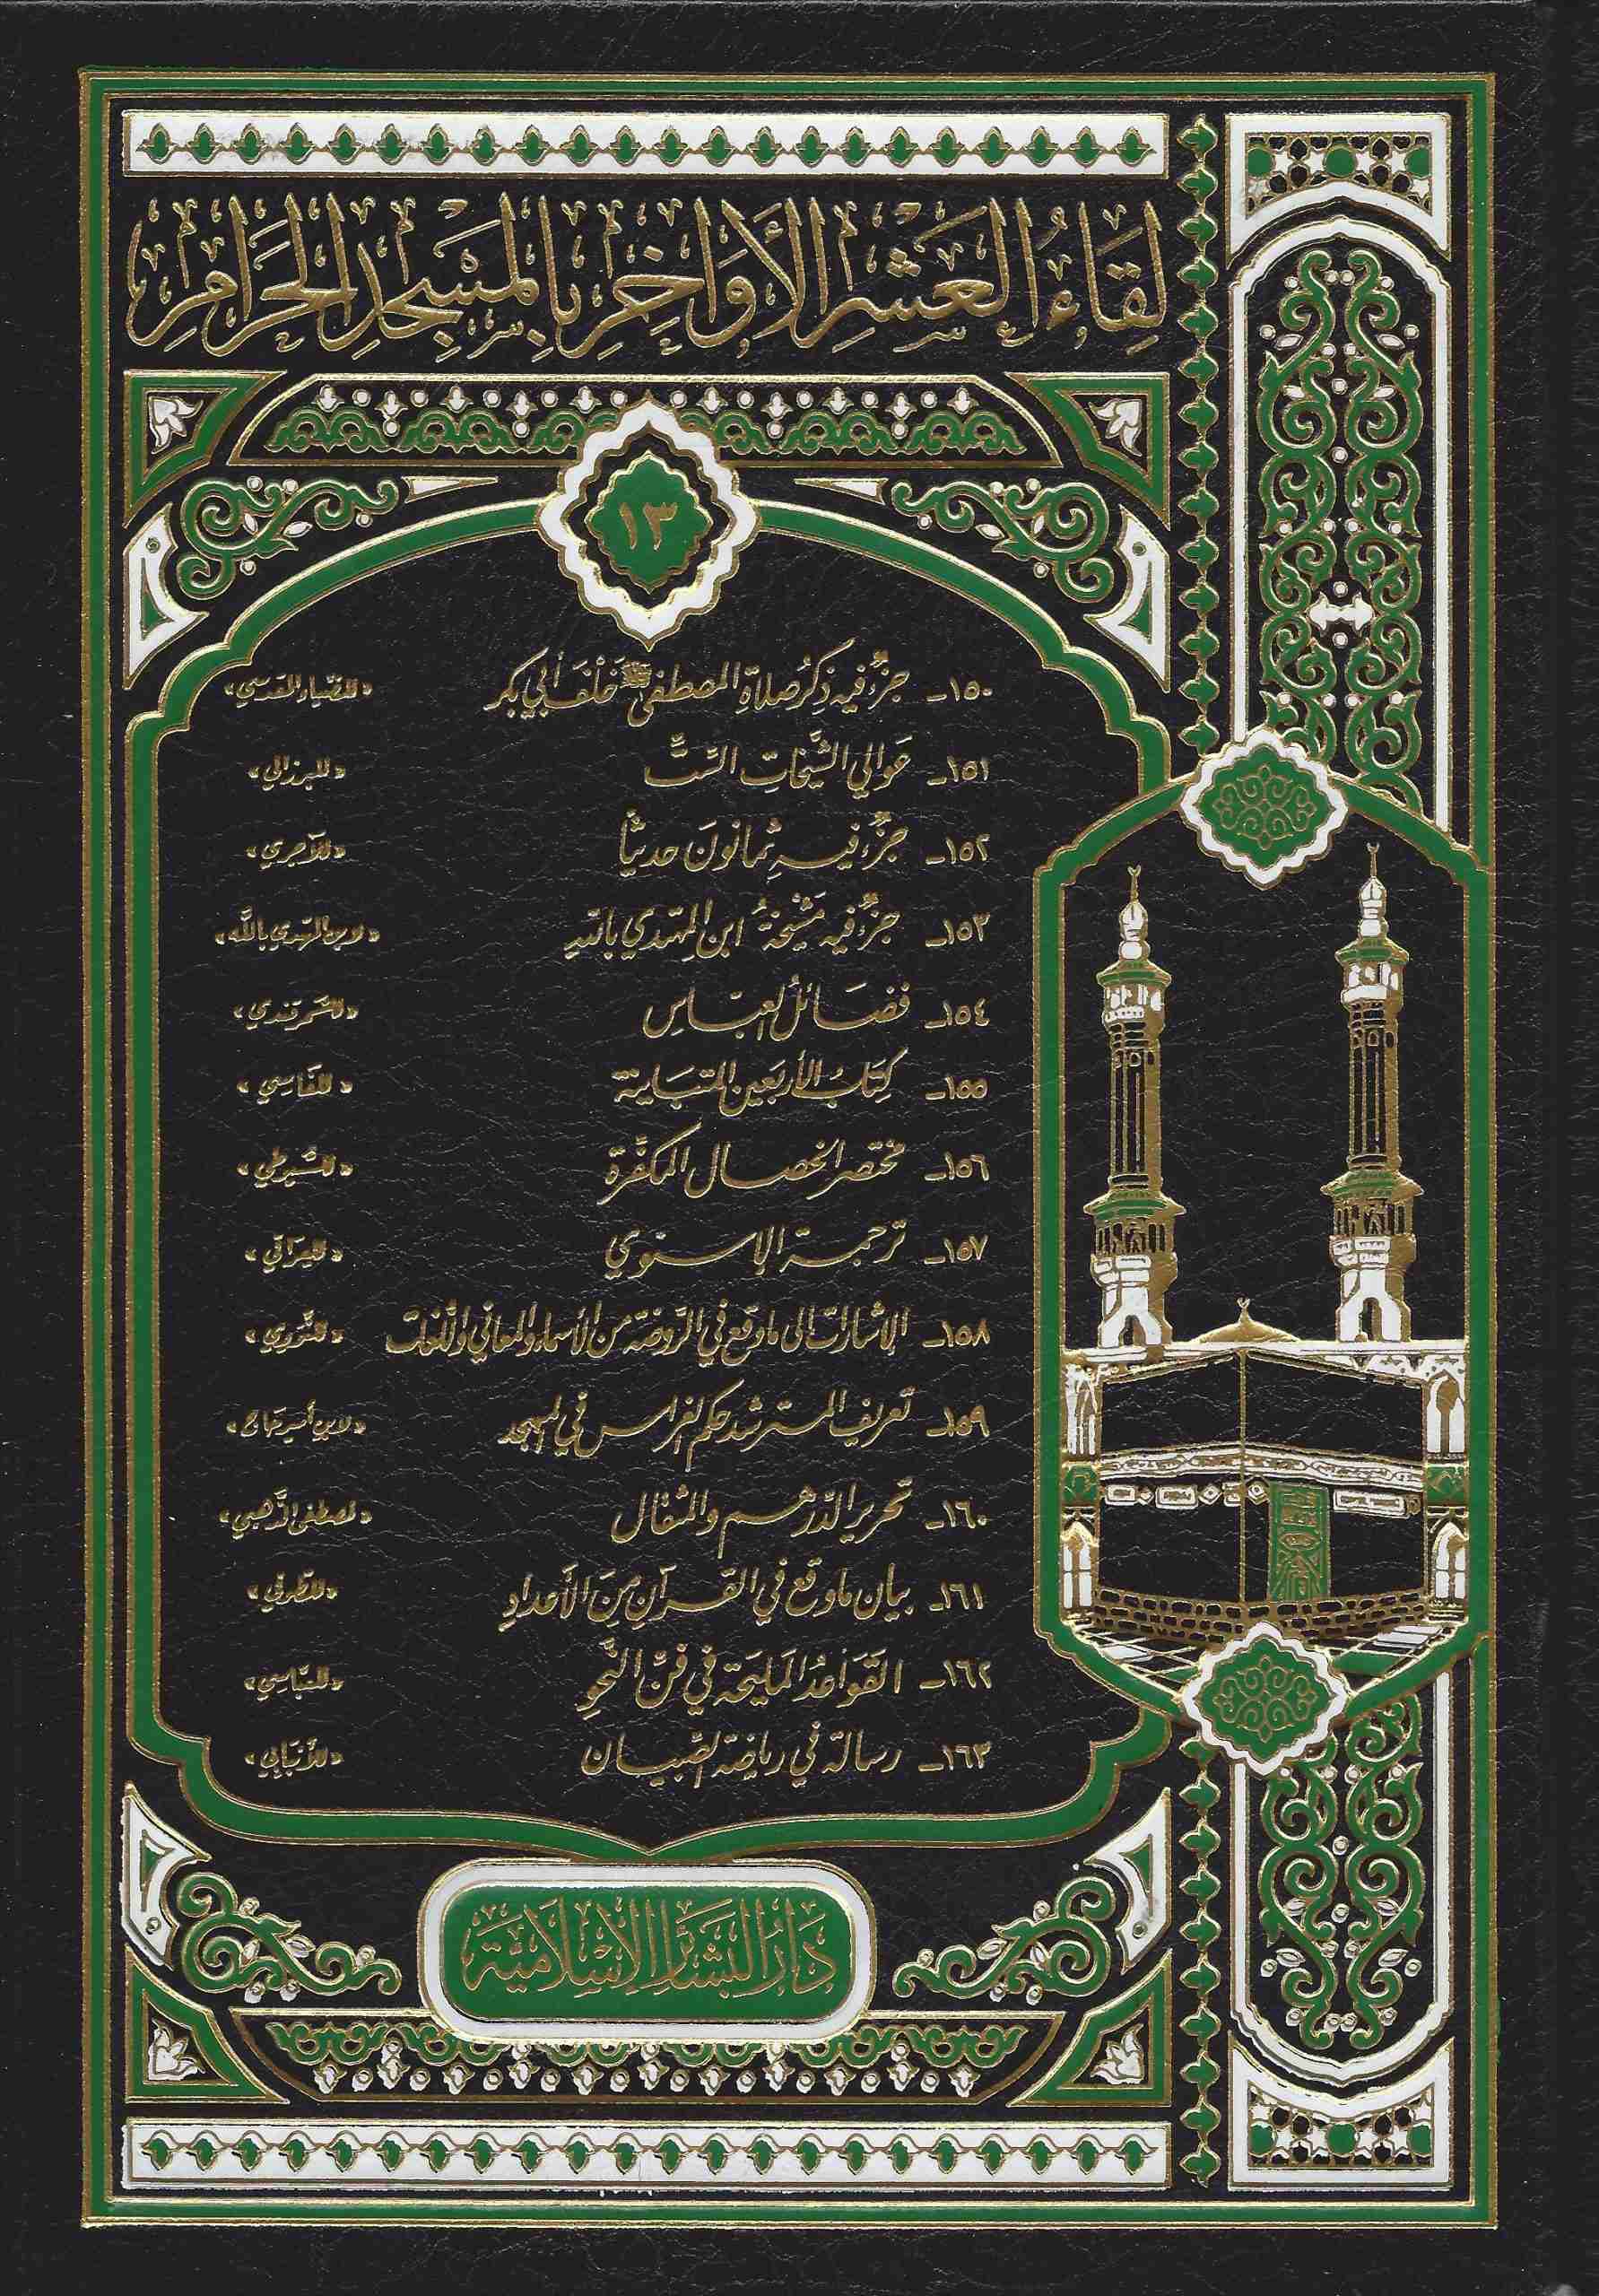 لِقَاءُ العَشْرِ الأَوَاخِرِ بِالمَسْجِدِ الحَرَامِ
١٣
١٥٠ـ جزءٌ فيه ذِكرُ صلاةِ المصطفى ﷺ خَلْفَ أبي بكر «للضياء المقدسي»
١٥١ـ عَوالي الشَّيخات السِّتّ «للبرزالي»
١٥٢ـ جزءٌ فيه ثمانونَ حديثاً «للآجري»
١٥٣ـ جزءٌ فيه مَشْيَخةُ ابن المهتدي بالله «لابن المهتدي بالله»
١٥٤ـ فضائلُ العبّاس «للسَّمرقندي»
١٥٥ـ كِتَابُ الأربَعين المتبَاينة «للفَاسي»
١٥٦ـ مختصر الخصال المكفِّرة «للسُّيوطي»
١٥٧ـ ترجمة الإسنوي «للعراقي»
١٥٨ـ الإشارات إلى ما وقع في الرَّوضة من الأسماء والمعاني واللُّغات «للنَّووي»
١٥٩ـ تعريف المسترشد حكم الغراس في المسجد «لابن أمير حاج»
١٦٠ـ تحرير الدِّرهم والمثقال «لمصطفى الذَّهبي»
١٦١ـ بيان ما وقع في القرآنِ مِنَ الأعدادِ
١٦٢ـ القَوَاعدُ المَليحَة في فنّ النَّحْوِ
١٦٣ـ رسالة في رياضة الصِّبيان «للأنبابي»
دَارُ البَشَائِرِ الإِسْلَامِيَّة